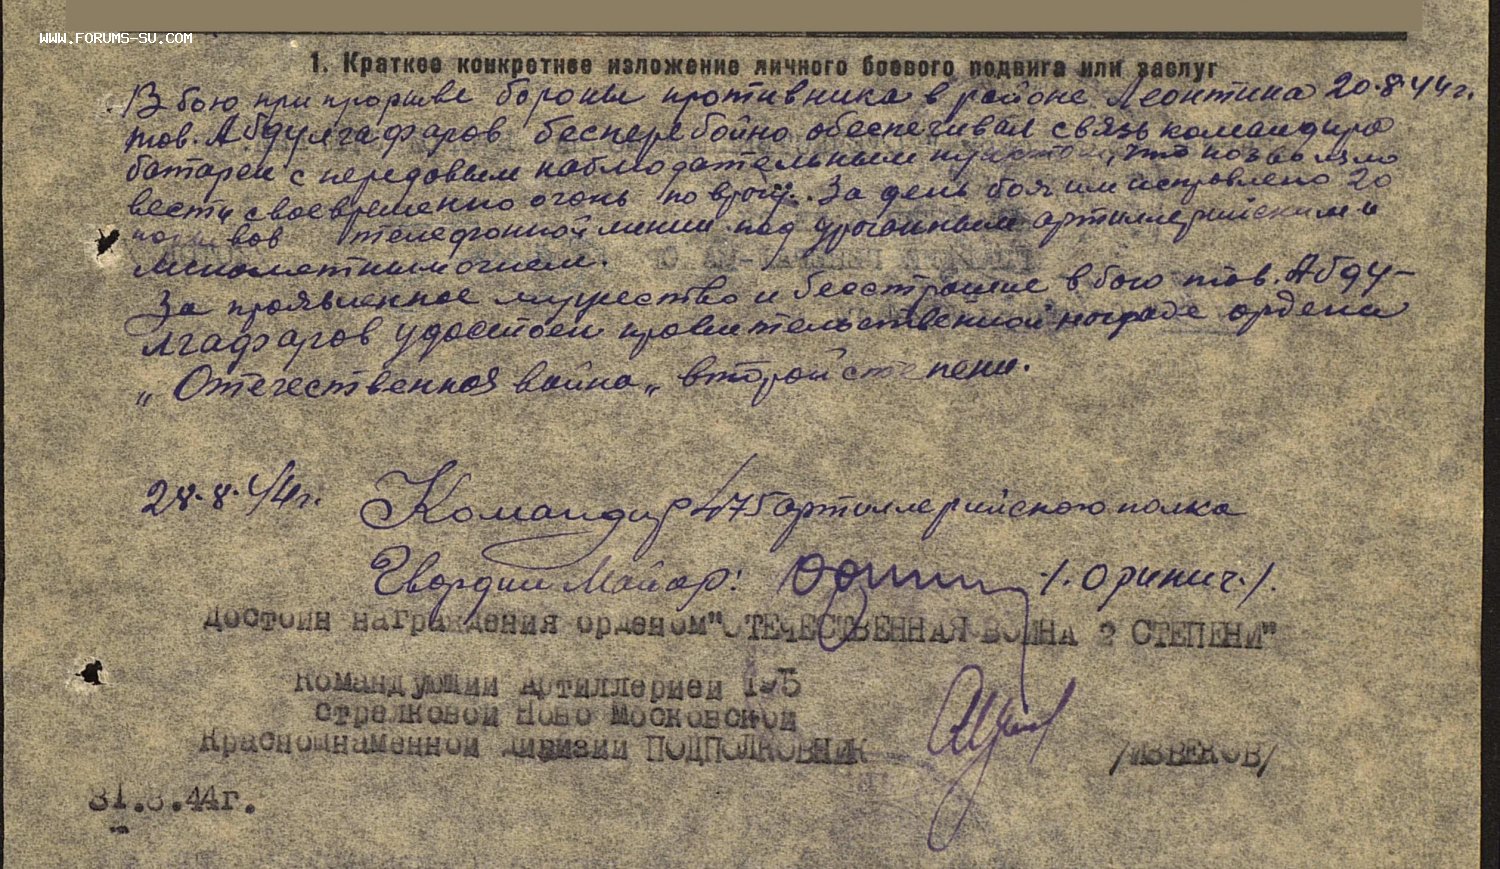 WWW.FORUMS-SU.COM
1. Краткое конкретнее изложение личного боевого подвига или заслуг
В бою при прорыве обороны противника в районе Леонтина 20.8.44г.
тов. Абдулгафаров бесперебойно обеспечивал связь командира
батареи с передовым наблюдательным пунктом, что позволяло
вести своевременно огонь по врагу. За день боя им исправлено 20
порывов телефонной линии под ураганным артиллерийским и
минометным огнем.
За проявленное мужество и бесстрашие в бою тов. Абду-
лгафаров удостоен правительственной награде ордена
„Отечественная война„ второй степени.
28.8.44г.
Командир 475 артиллерийского полка
Гвардии Майор: /.Оринич./.
Достоин награждения орденом "ОТЕЧЕСТВЕННАЯ ВОЙНА 2 СТЕПЕНИ"
Командующий Артиллерией
стрелковой Ново Московской
Краснознаменной дивизии ПОДПОЛКОВНИК /ИЗВЕКОВ/
31.8.44г.